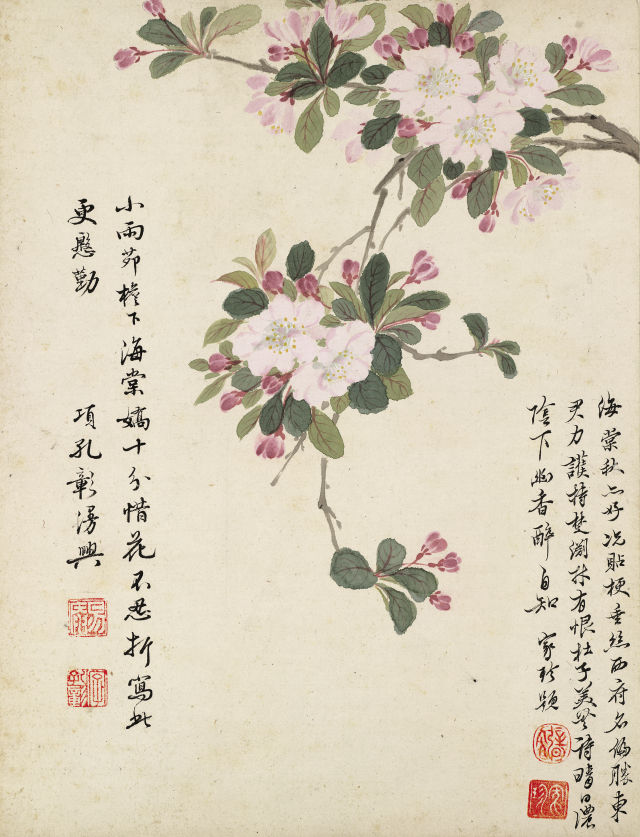 海棠秋亦好況貼梗垂絲西府名偏勝東
君力護持楚淵材有恨杜子美無詩晴日濃
陰下幽香醉自知 家珍題
小雨茆檐下海棠嬌十分惜花不忍折寫此
更慇勤
項孔彰漫興